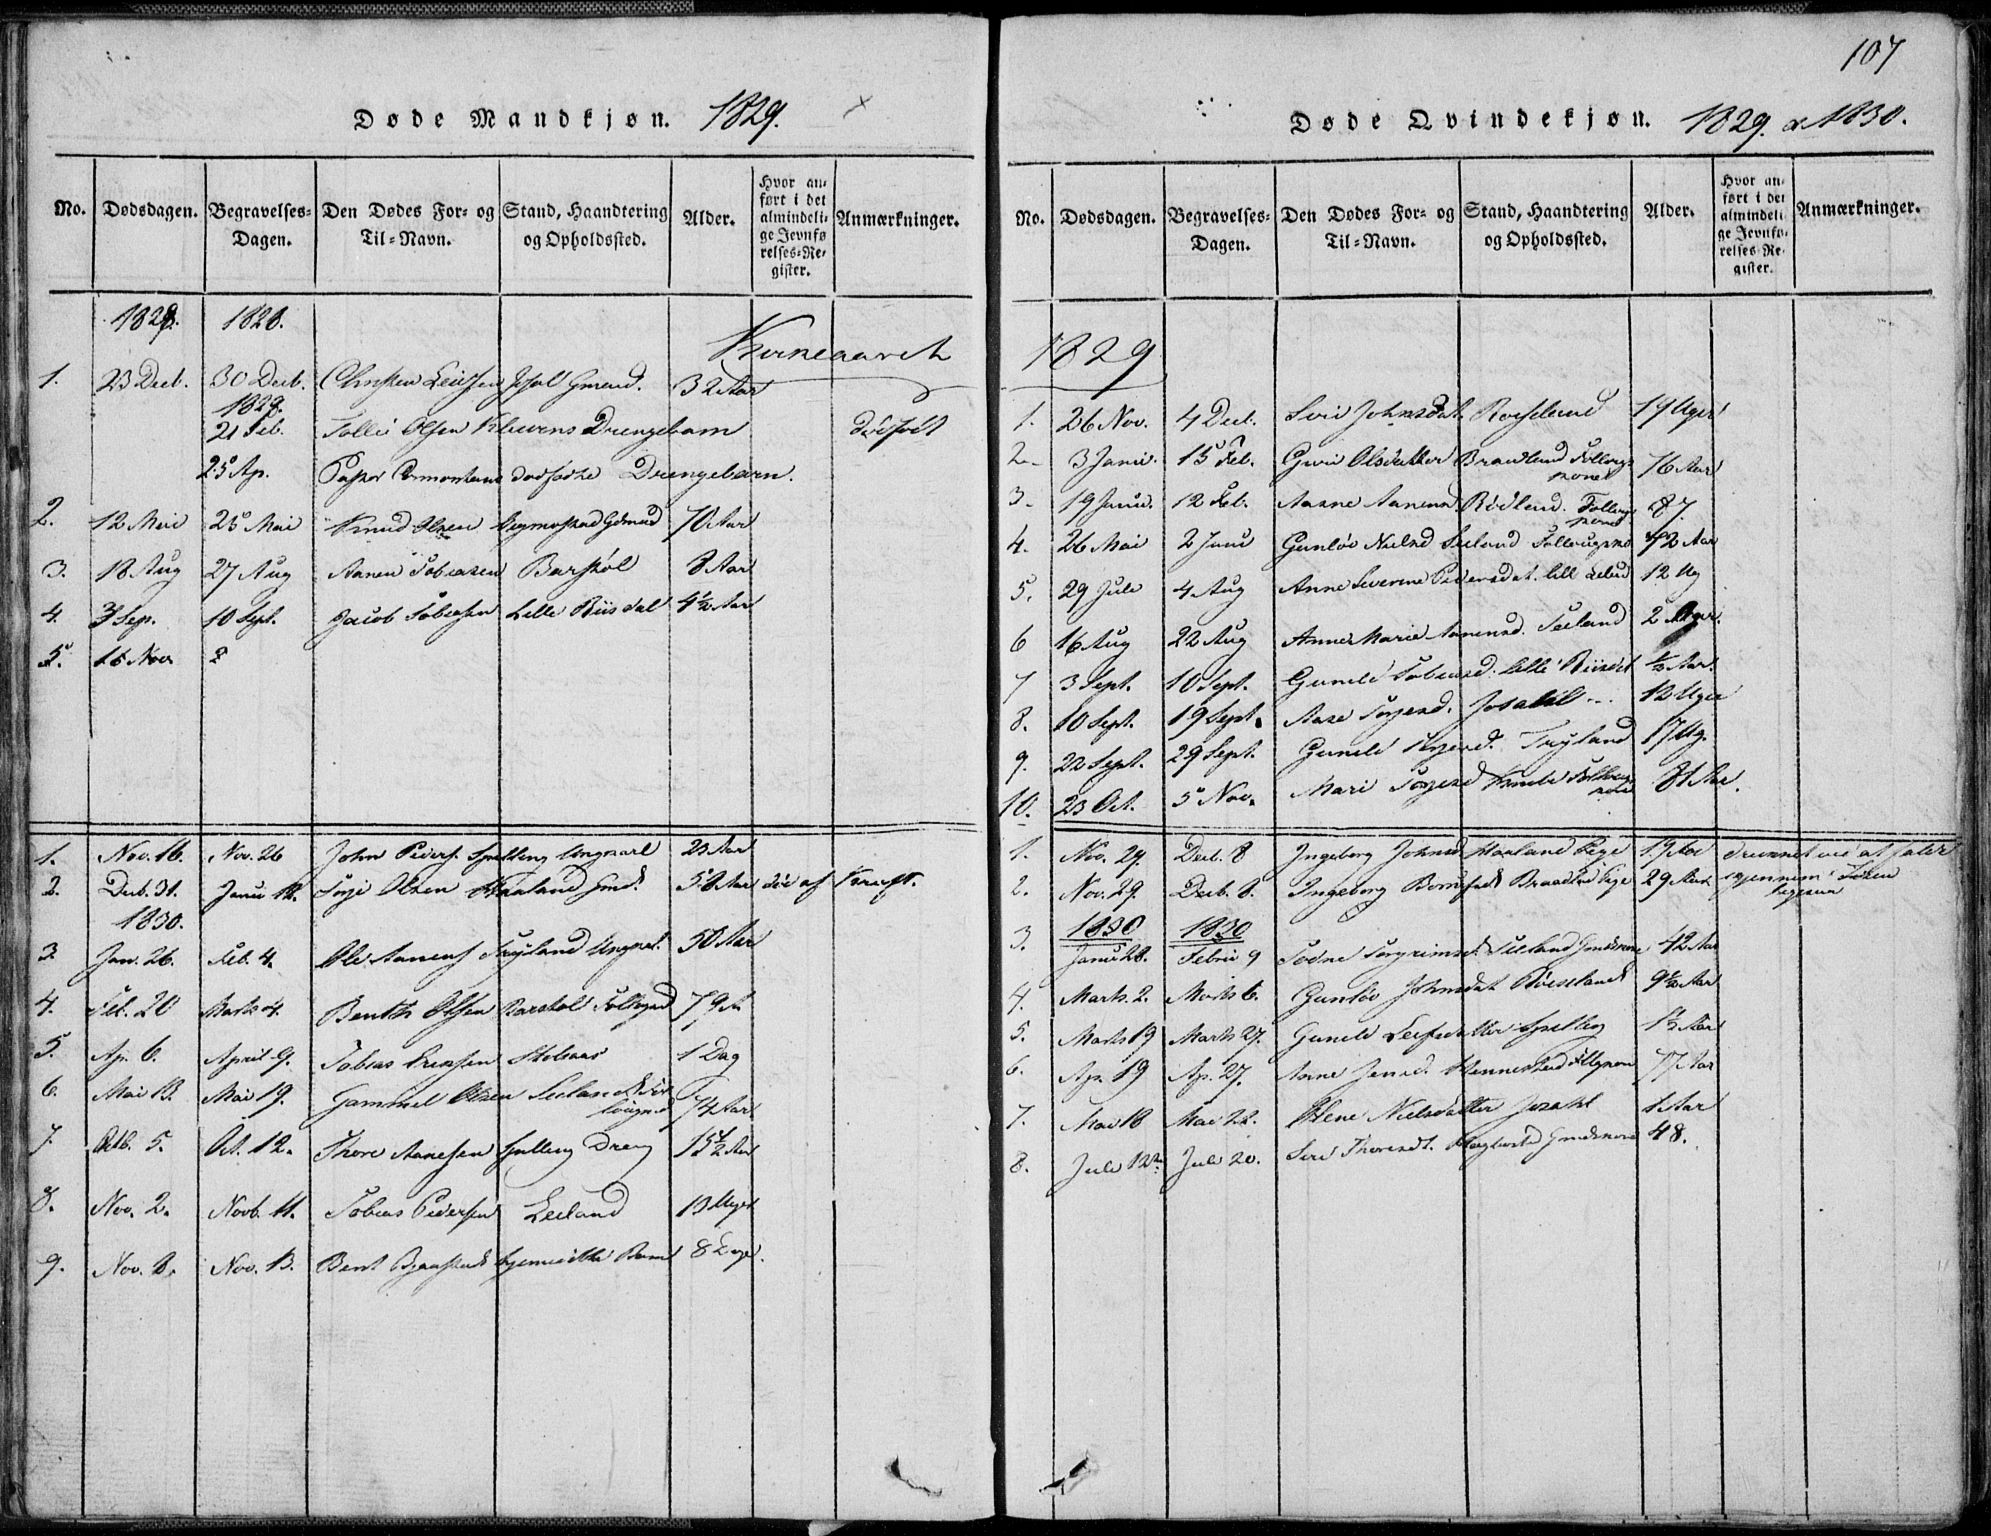 Døde Mandkjøn. 1829.
No. Dødsdagen. Begravelses-Dagen. Den Dødes For- og Til-Navn. Stand, Haandtering og Opholdssted. Alder. Hvor anført i det almindelige Jevnførelses-Register. Anmærkninger.
1828. 1828.
1. 23 Decb. 30 Decb. 32 Aar
1829.
21 Feb. Tollev Olsen Klevens Drengebarn dødfødt
25 Ap. dødfødte Drengebarn.
2. 12 Mai 25 Mai Knud Olsen 70 Aar
3. 18 Aug 27 Aug Aanen Tobiasen Barstøl 8 Aar
4. 3 Sep. 10 Sept. Jacob Tobiasen Lille Riisdal 4½ Aar
5. 16 Nov
1. Nov. 16. Nov. 26 John Peders. Spilling Ungkarl 23 Aar
2. Decb. 31. Janu 12. Torje Olsen Haaland Gmd. 58 Aar død af Kræft.
1830.
3. Jan. 26. Feb. 4. Ole Aanens Tryland Ungkal. 50 Aar
4. Feb. 20 Marts 4. Benth Olsen Barstøl Follogmd 79 A
5. Ap. 6. April 9. Tobias 1 Dag
6. Mai 13. Mai 19. Gammel Olsen Leeland 74 Aar
7. Octb. 5. Oct. 12. Thore Aanesen Spilling Dreng 15½ Aar
8. Nov. 2. Novb. 11. Tobias Pedersen Leeland 13 Uger
9. Nov. 8. Nov. 13. Bent Barn 8 Dage.
107
Døde Qvindekjøn. 1829. & 1830.
No. Dødsdagen. Begravelses-Dagen. Den Dødes For- og Til-Navn. Stand, Haandtering og Opholdssted. Alder. Hvor anført i det almindelige Jevnførelses-Register. Anmærkninger.
1829
1. 26 Nov. 4 Decb. Siri Johnsdat. Røiseland 19 Uger
2. 3 Janu. 15 Feb. Guri Olsdatter Braadland Follougskone 76 Aar
3. 19 Janu. 12 Feb. Aasne Aanensd. Rødland. Follougskone 87.
4. 26 Mai 2 Juni Gunløv Nielsd Leeland 72 Aar
5. 29 Jule 4 Aug Anne Severine Pedersdat. 12 Ug
6 16 Aug 22 Aug Anne Marie Aanensd. Leeland 2 Uger.
7 3 Sept. 10 Sept. Gunild Tobiasd. Lille Riisdal ½ Aar.
8. 10 Sept. 19 Sept. Aase Torjesd. Josdahl 12 Uger
9. 22 Sept. 29 Sept. Gunild Torjesd. Tryland 17 Ug.
10. 23 Oct. 5 Nov. Mari Torjesd 81 Aar.
1. Nov. 29 Decb. 8 Ingeborg Johnsd Haaland Pige 19 Aar druknet ved at falde
2. Nov. 29. Decb. 8. Ingeborg Braadland Pige 29 Aar igjennem Isen
1830 1830
3. Janu 28. Febru 9 Torgrimsd. Leeland Gmdskone 42 Aar
4. Marts. 2. Marts 6. Gunløv Johnsdat Røiseland 9½ Aar
5. Marts 19 Marts 27. Gunild Leifsdatter Spilling 1½ Aar
6. Ap. 19 Ap. 27. Anne Jensd. Hennestad 77 Aar
7. Mai 18 Mai 22. Nielsdatter Josdahl 1 Aar
8. Jule 12 Jule 20. Siri Thoresdt. Gmdskone 48.